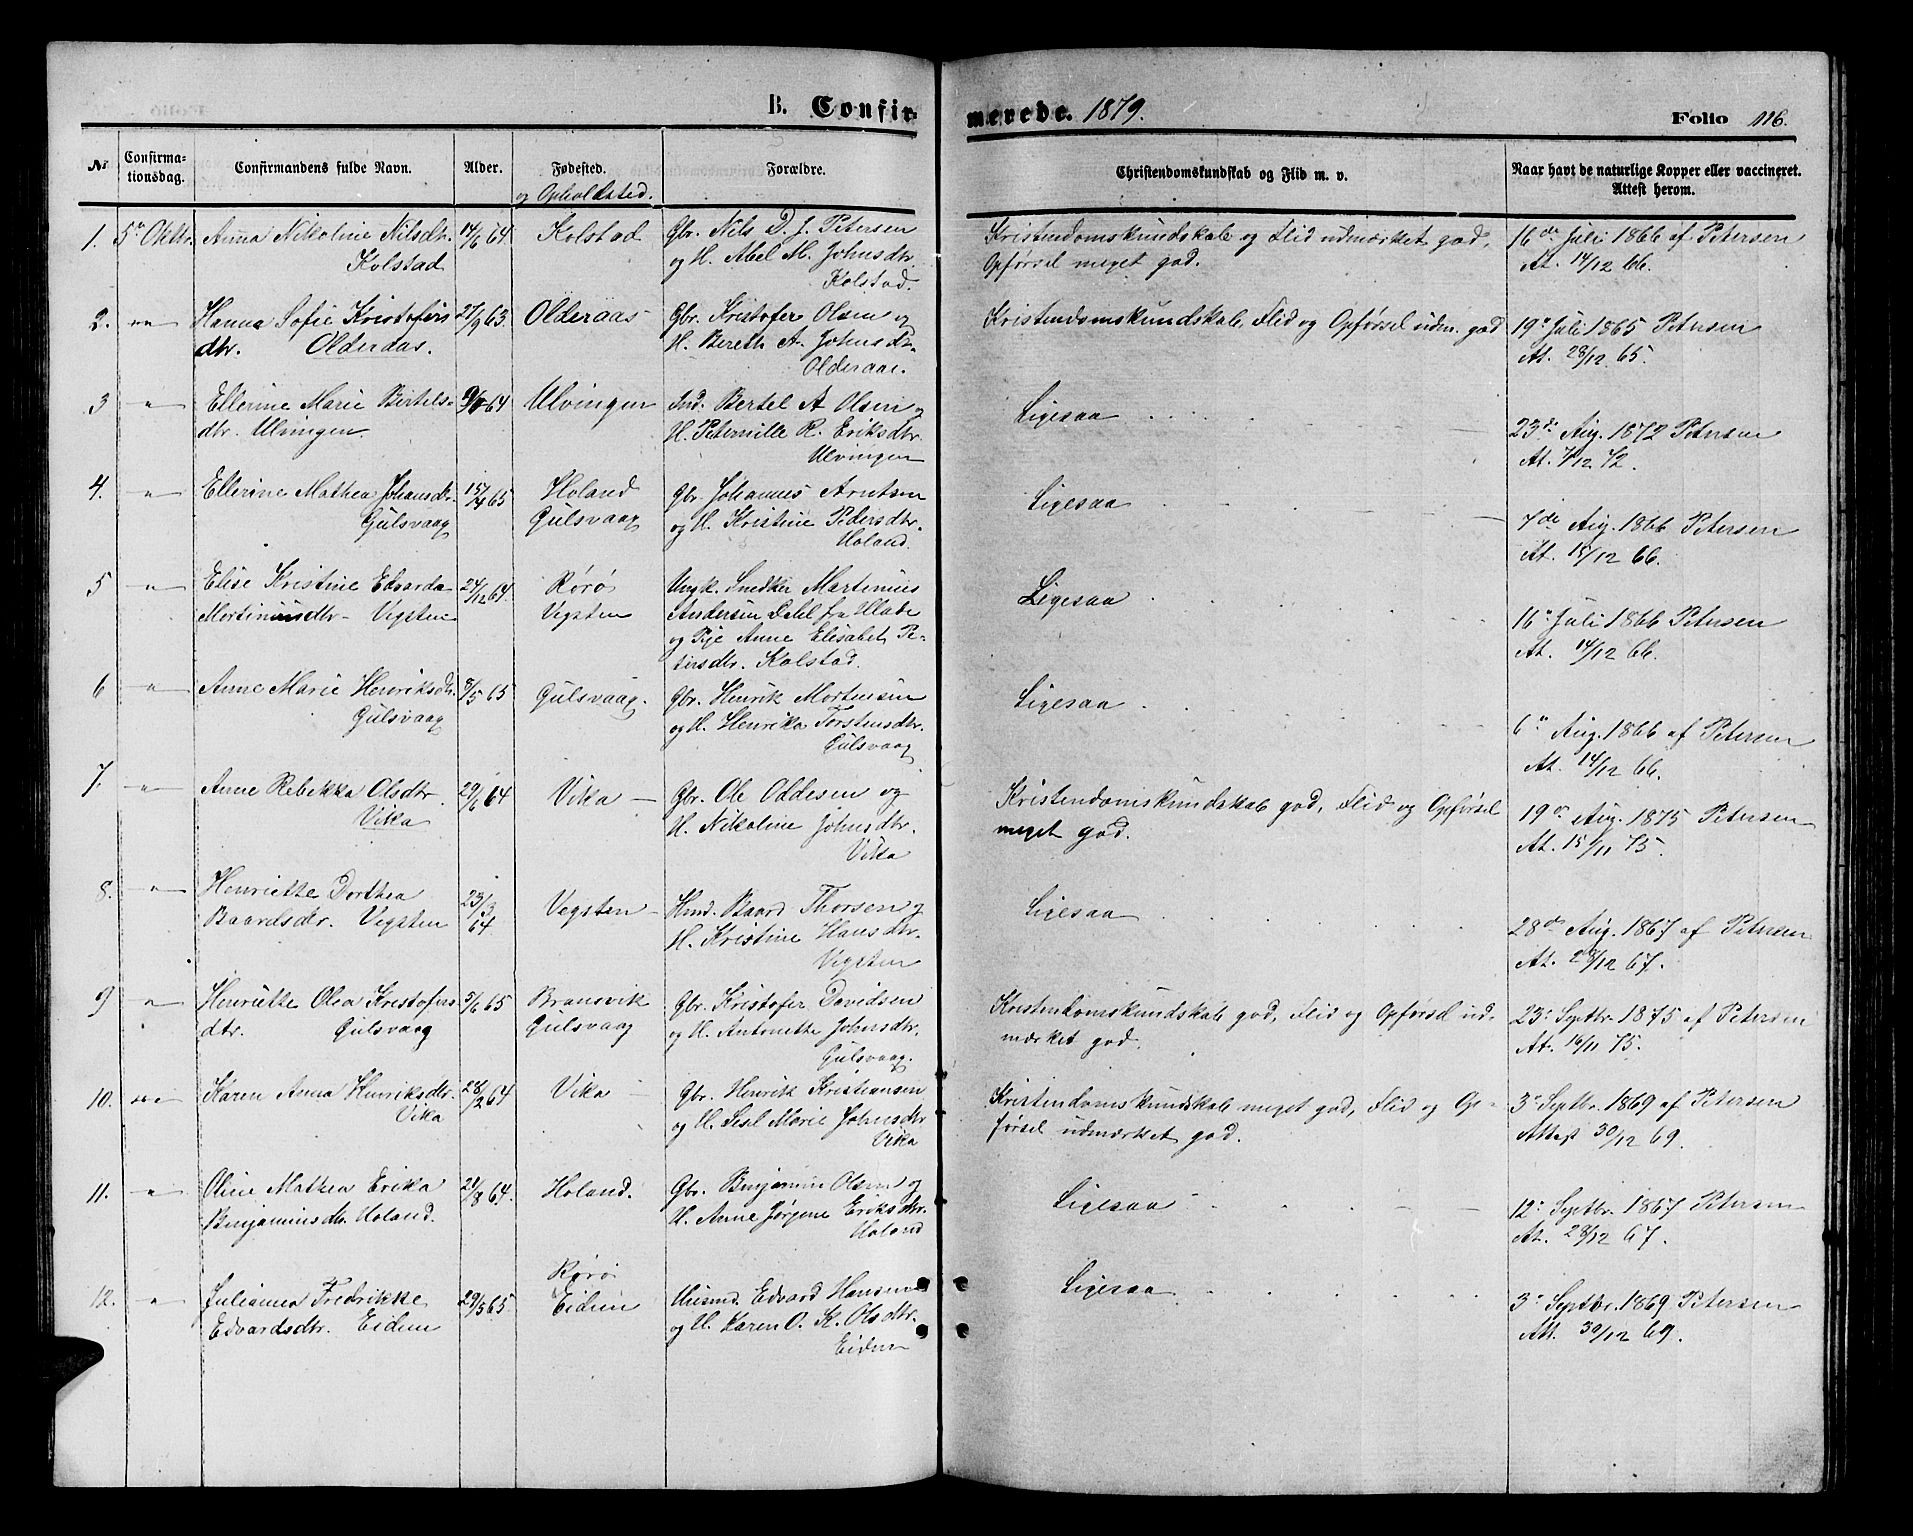 B. Confir-
merede. 1879.
Folio 116.
No.
Confirma-
tionsdag.
Confirmandens fulde Navn.
Alder.
Fødested.
og Opholdssted.
Forældre.
Christendomskundskab og Flid m. v.
Naar havt de naturlige Kopper eller vaccineret.
Attest herom.
1. 5te Oktbr. Anna Nikoline Nilsdtr. 14/6 64. Kolstad Gbr. Nils D. J. Petersen Kristendomskundskab og Flid udmærket god, 16de Juli 1866 af Petersen
Kolstad og H. Abel M. Johnsdtr. Opførsel meget god. At. 14/12 66.
Kolstad.
2. " " Hanna Sofie Kristofers 27/9 63. Olderaas Gbr. Kristofer Olsen og Kristendomskundskab, Flid og Opførsel udm. god 19de Juli 1865 Petersen
dtr. Olderaas. H. Bereth A. Johnsdtr. At. 28/12 65.
Olderaas.
3 " Ellerine Marie Bertels- 64 Ulvingen Ind. Bertel A. Olsen og Ligesaa
dtr. Ulvingen. H. Peternille R. Eriksdtr. 23de Aug. 1872 Petersen
Ulvingen At. 7/12 72.
4. " Ellerine Mathea Johansdtr. 15/4 65 Holand Gbr. Johannes Arntsen Ligesaa
Gulsvaag Gulsvaag og H. Kristine Pedersdtr. 7de Aug. 1866 Petersen
Holand. At. 15/12 66.
5 " Elise Kristine Edvarda 24/12 64. Rørø Ungk. Snedker Martinius Ligesaa
Martiniusdtr. Vegsten Vegsten Andersen Dahl fra
og Pige Anne Elisabet Pe- 16de Juli 1866 Petersen
tersdtr. Kolstad. At. 14/12 66.
6 " Anne Marie Henriksdtr. 8/5 65 Gulsvaag. Gbr. Henrik Mortensen Ligesaa
Gulsvaag og H. Henrika Torstensdtr. 6te Aug. 1866 af Petersen
Gulsvaag At. 14/12 66.
7. " Anne Rebekka Olsdtr. 29/6 64 Vika Gbr. Ole Oddesen og Kristendomskundskab god, Flid og Opførsel 19de Aug. 1875 Petersen
Vika H. Nikoline Johnsdtr. meget god. At. 15/11 75.
Vika
8. " Henriette Dorthea 23/3 Vegsten Hmd. Baard Thorsen og Ligesaa
Baardsdtr. Vegsten 64 H. Kristine Hansdtr. 28de Aug. 1867 af Petersen
Vegsten At. 28/12 67.
9 " Henriette Olea Kristofers 5/6 65 Bransvik Gbr. Kristofer Davidsen Kristendomskundskab god, Flid og Opførsel ud- 23de Septbr. 1875 af Petersen
dtr. Gulsvaag Gulsvaag og H. Antonette Johnsdtr. mærket god. At. 16/11 75.
Gulsvaag.
10. " " Karen Anna Henriksdtr. 28/2 64 Vika Gbr. Henrik Kristiansen Kristendomskundskab meget god, Flid og Op- 3de Septbr. 1869 af Petersen
Vika og H. Sesl Marie Johnsdtr. førsel udmærket god. Attest 30/12 69.
Vika
11. " Oline Mathea Erika 24/8 64. Holand. Gbr. Benjamin Olsen og Ligesaa
Benjaminsdtr. Holand. H. Anne Jørgine Eriksdtr. 12te Septbr. 1867 Petersen
Holand At. 28/12 67.
12. " Julianna Fredrikke 29/3 65. Rørø Husmd. Edvard Hansen Ligesaa
Edvardsdtr. Eidem Eidem og H. Karen O. K. Olsdtr. 3de Septbr. 1869 Petersen
Eidem At. 30/12 69.